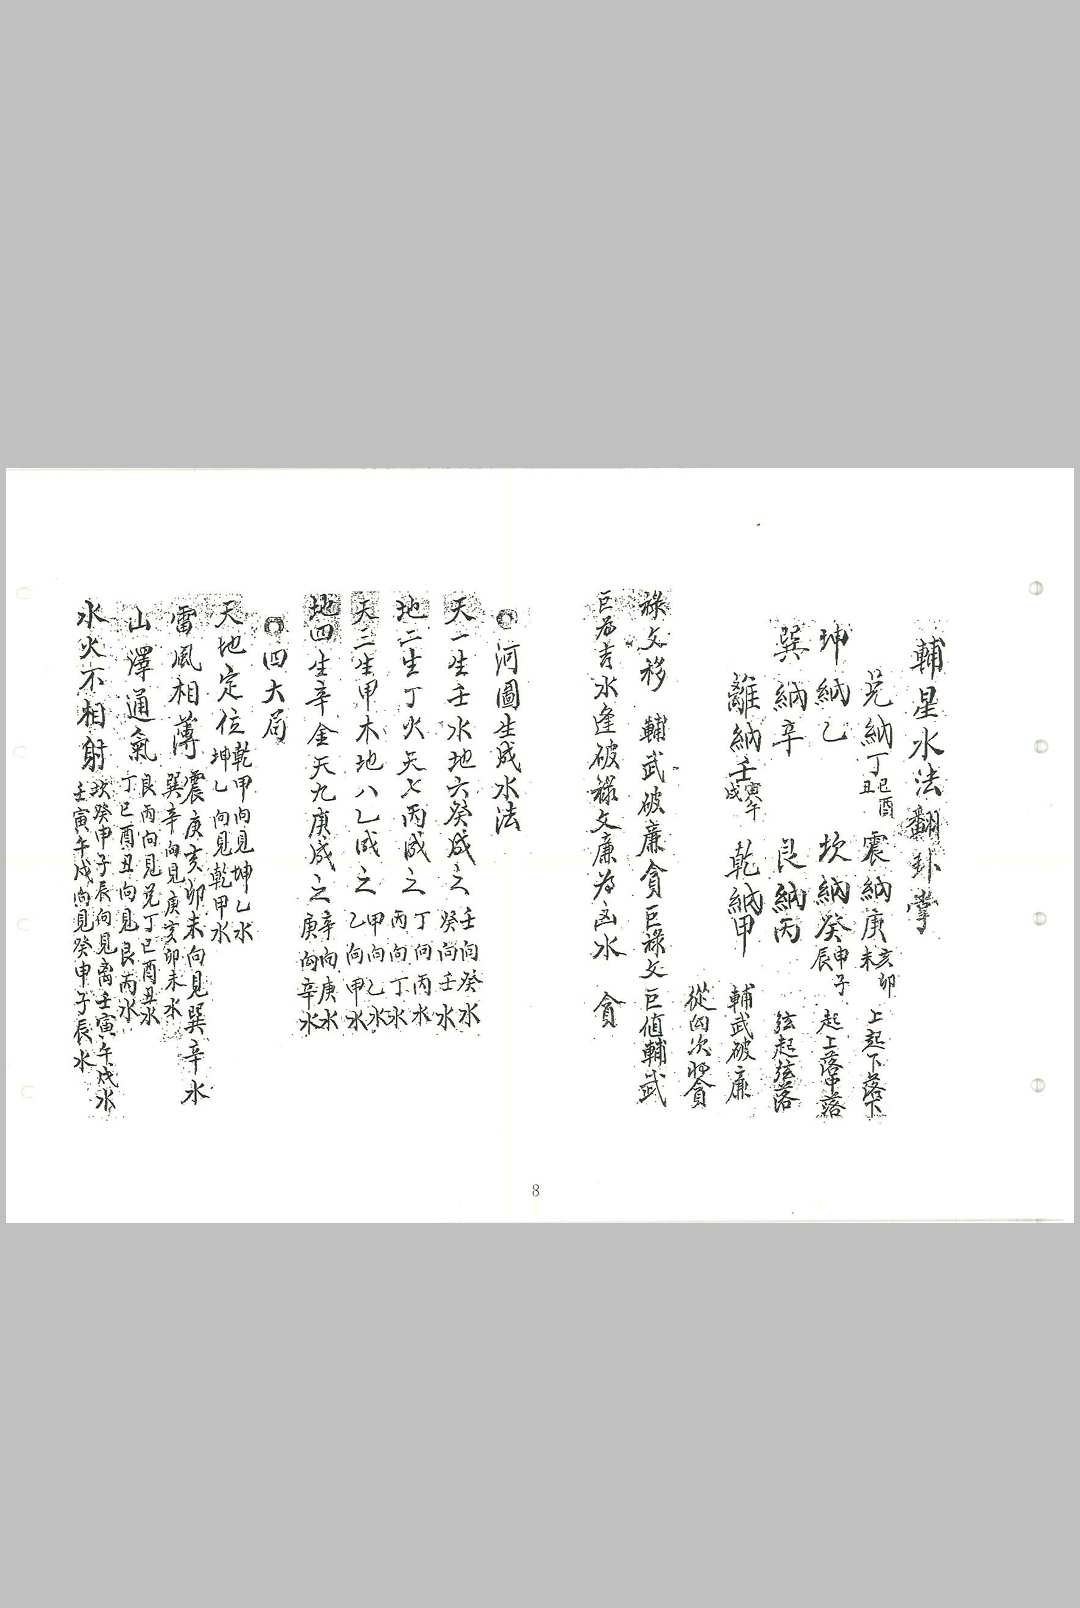 輔星水法翻卦掌
兌納丁巳酉丑 震納庚亥卯未 上起下落下
坤納乙 坎納癸申子辰 起上落中落
巽納辛 艮納丙 弦起弦落
離納壬寅午戌 乾納甲 輔武破廉
從向次將貪
祿文移 輔武破廉貪巨祿文巨值輔武
巨為吉水逢破祿文廉為凶水 貪
河圖生成水法
天一生壬水地六癸成之 壬向癸水 癸向壬水
地二生丁火天七丙成之 丁向丙水 丙向丁水
天三生甲木地八乙成之 甲向乙水 乙向甲水
地四生辛金天九庚成之 辛向庚水 庚向辛水
四大局
天地定位 乾甲向見坤乙水 坤乙向見乾甲水
雷風相薄 震庚亥卯未向見巽辛水 巽辛向見庚亥卯未水
山澤通氣 艮丙向見兌丁巳酉丑水 丁巳酉丑向見艮丙水
水火不相射 坎癸申子辰向見离壬寅午戌水 壬寅午戌向見癸申子辰水
8